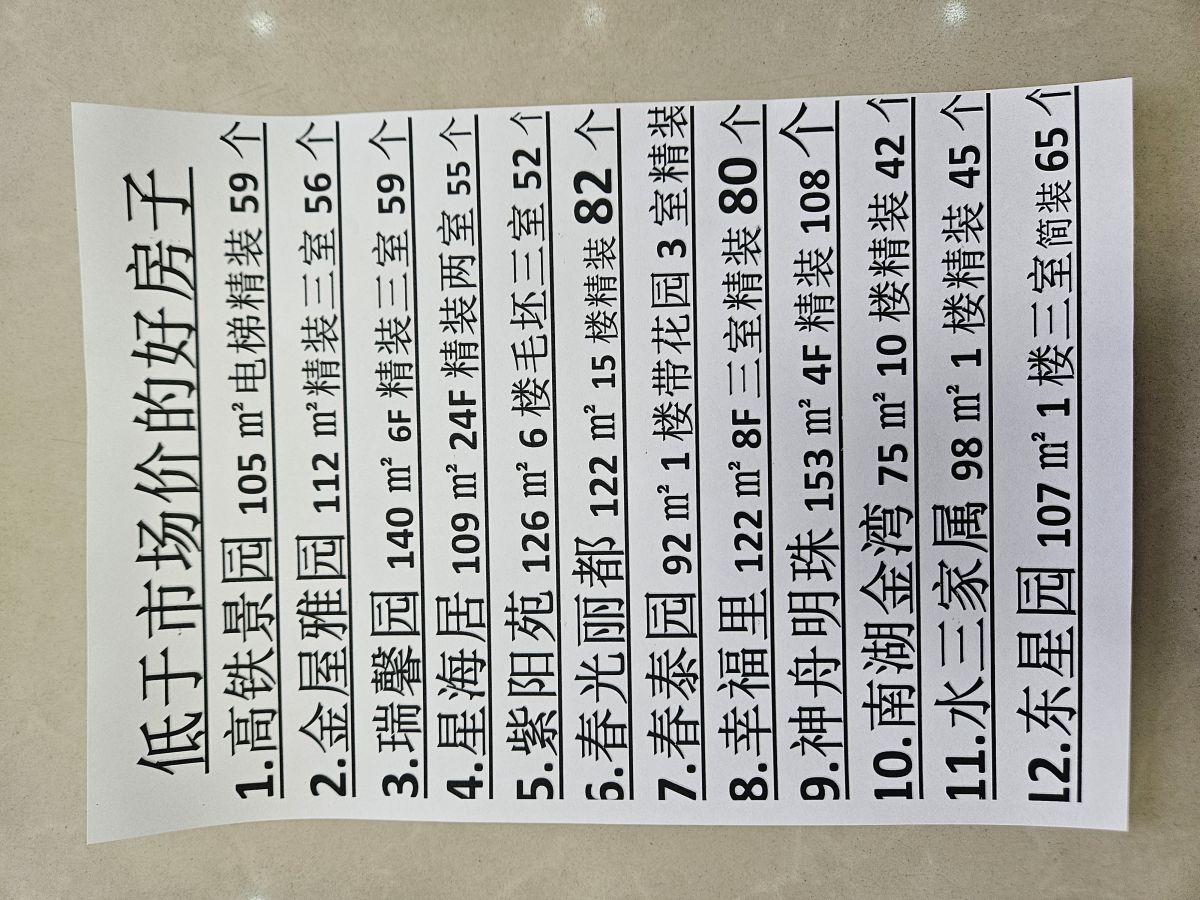 低于市场价的好房子
1.高铁景园 105 ㎡电梯精装 59 个
2.金屋雅园 112 ㎡精装三室 56 个
3.瑞馨园 140 ㎡ 6F 精装三室 59 个
4.星海居 109 ㎡ 24F 精装两室 55 个
5.紫阳苑 126 ㎡ 6 楼毛坯三室 52 个
6.春光丽都 122 ㎡ 15 楼精装 82 个
7.春泰园 92 ㎡ 1 楼带花园 3 室精装
8.幸福里 122 ㎡ 8F 三室精装 80 个
9.神舟明珠 153 ㎡ 4F 精装 108 个
10.南湖金湾 75 ㎡ 10 楼精装 42 个
11.水三家属 98 ㎡ 1 楼精装 45 个
12.东星园 107 ㎡ 1 楼三室简装 65 个